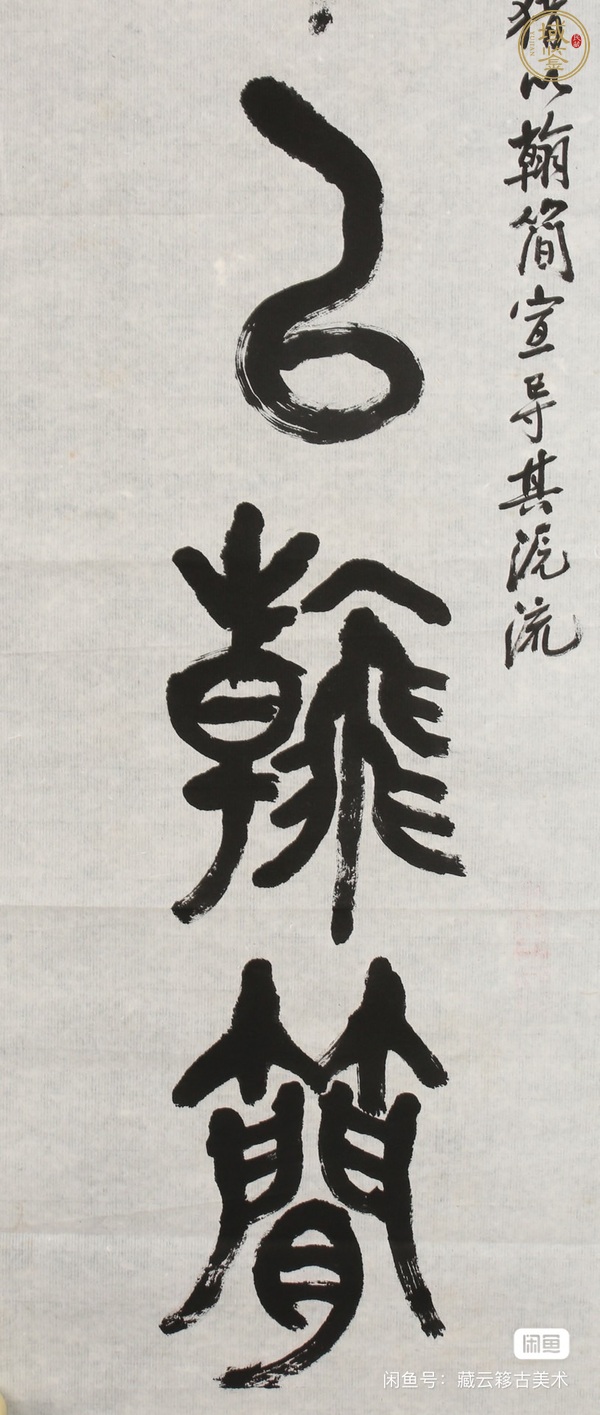 以翰简宣导其源流
㠯翰簡
闲鱼
闲鱼号：藏云簃古美术